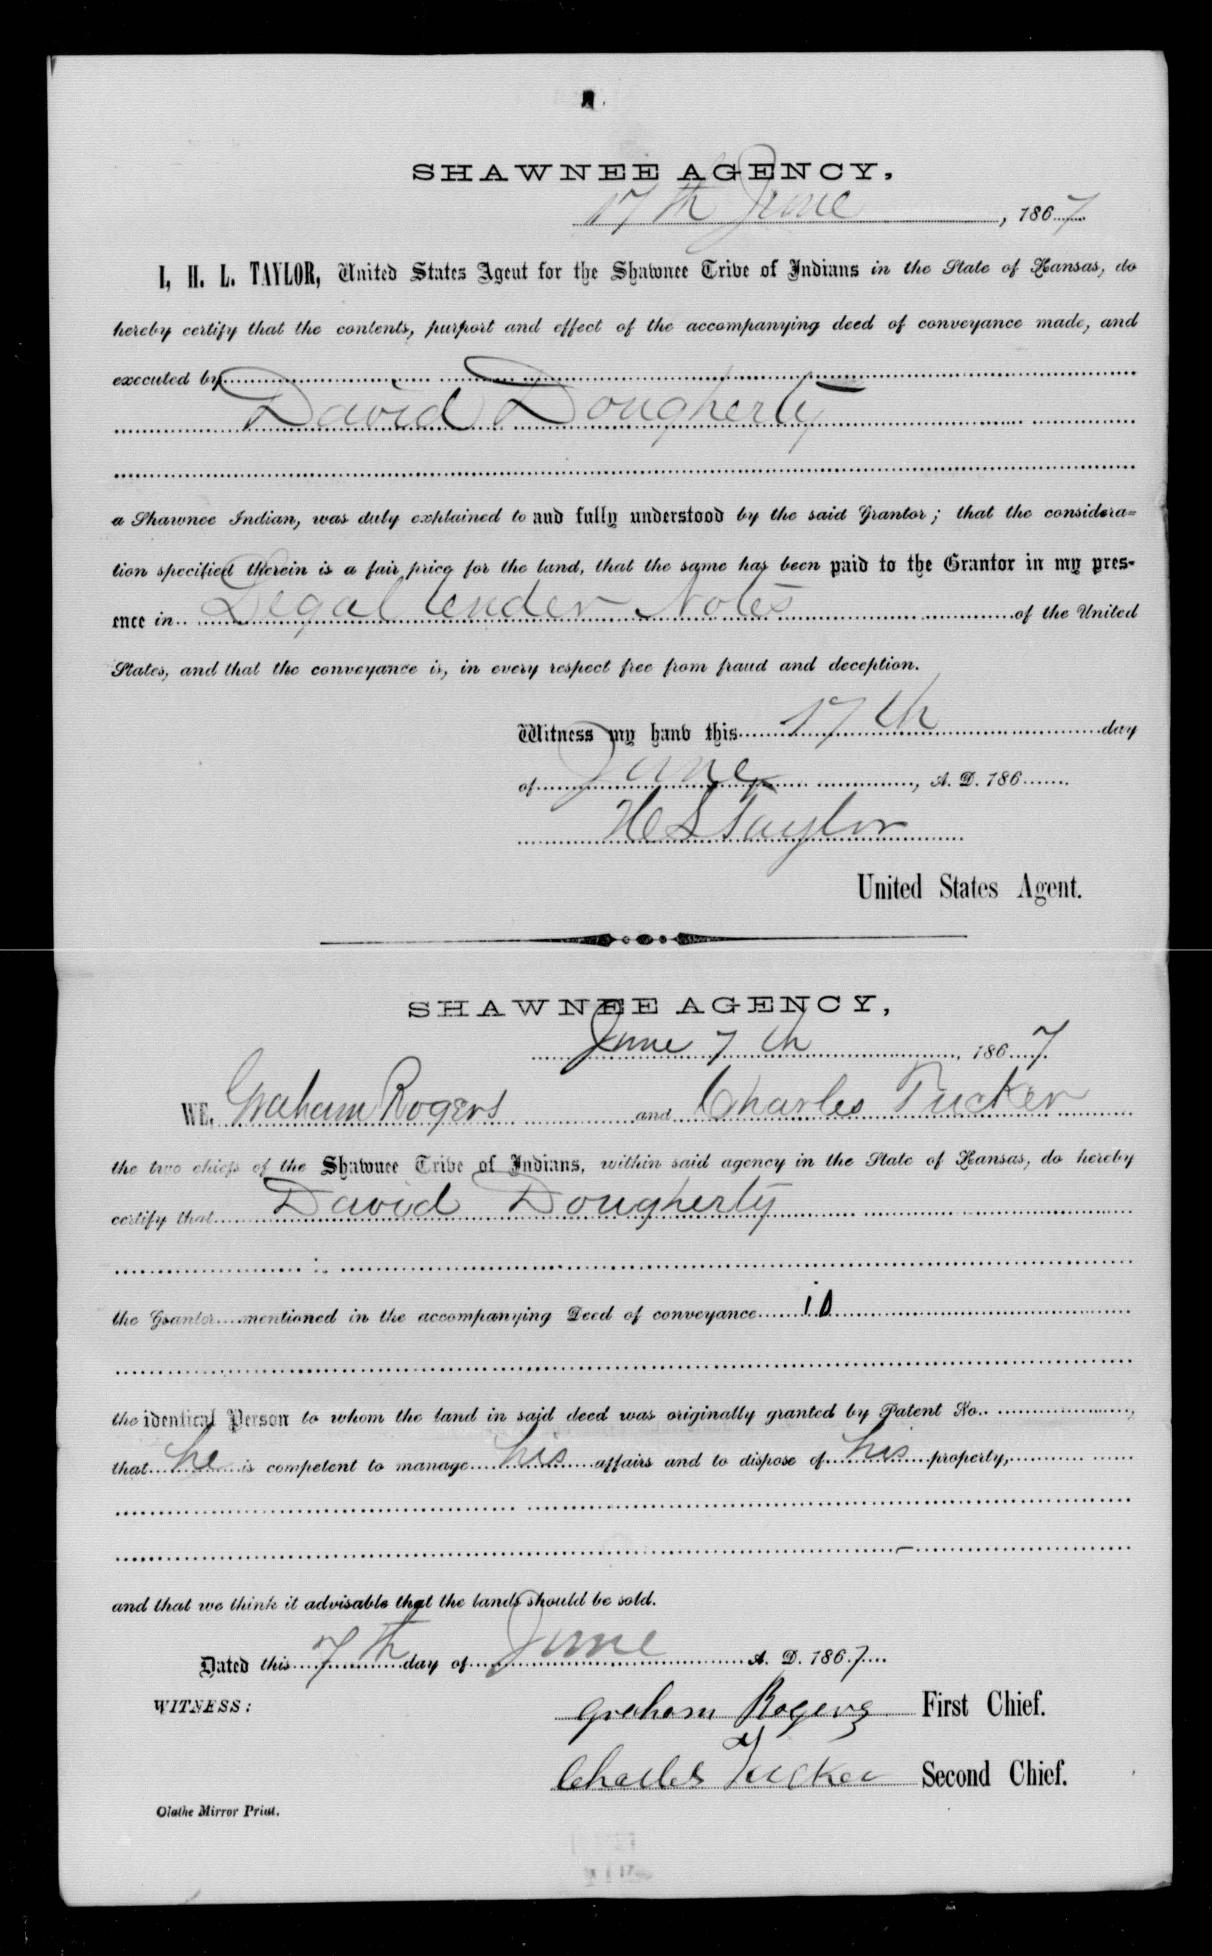 SHAWNEE AGENCY,
17th June, 1867
I, H. L. TAYLOR, United States Agent for the Shawnee Tribe of Indians in the State of Kansas, do
hereby certify that the contents, purport and effect of the accompanying deed of conveyance made, and
executed by
David Dougherty
a Shawnee Indian, was duly explained to and fully understood by the said Grantor; that the considera-
tion specified therein is a fair price for the land, that the same has been paid to the Grantor in my pres-
ence in Legal tender Notes of the United
States, and that the conveyance is, in every respect free from fraud and deception.
Witness my hand this 17th day
of June, A. D. 186
H L Taylor
United States Agent.
SHAWNEE AGENCY,
June 7th, 1867.
WE, Graham Rogers and Charles Tucker
the two chiefs of the Shawnee Tribe of Indians, within said agency in the State of Kansas, do hereby
certify that David Dougherty
the Grantor mentioned in the accompanying Deed of conveyance is
the identical Person to whom the land in said deed was originally granted by Patent No. ,
that he is competent to manage his affairs and to dispose of his property,
and that we think it advisable that the lands should be sold.
Dated this 7th day of June A. D. 1867
WITNESS:
Graham Rogers First Chief.
Charles Tucker Second Chief.
Olathe Mirror Print.